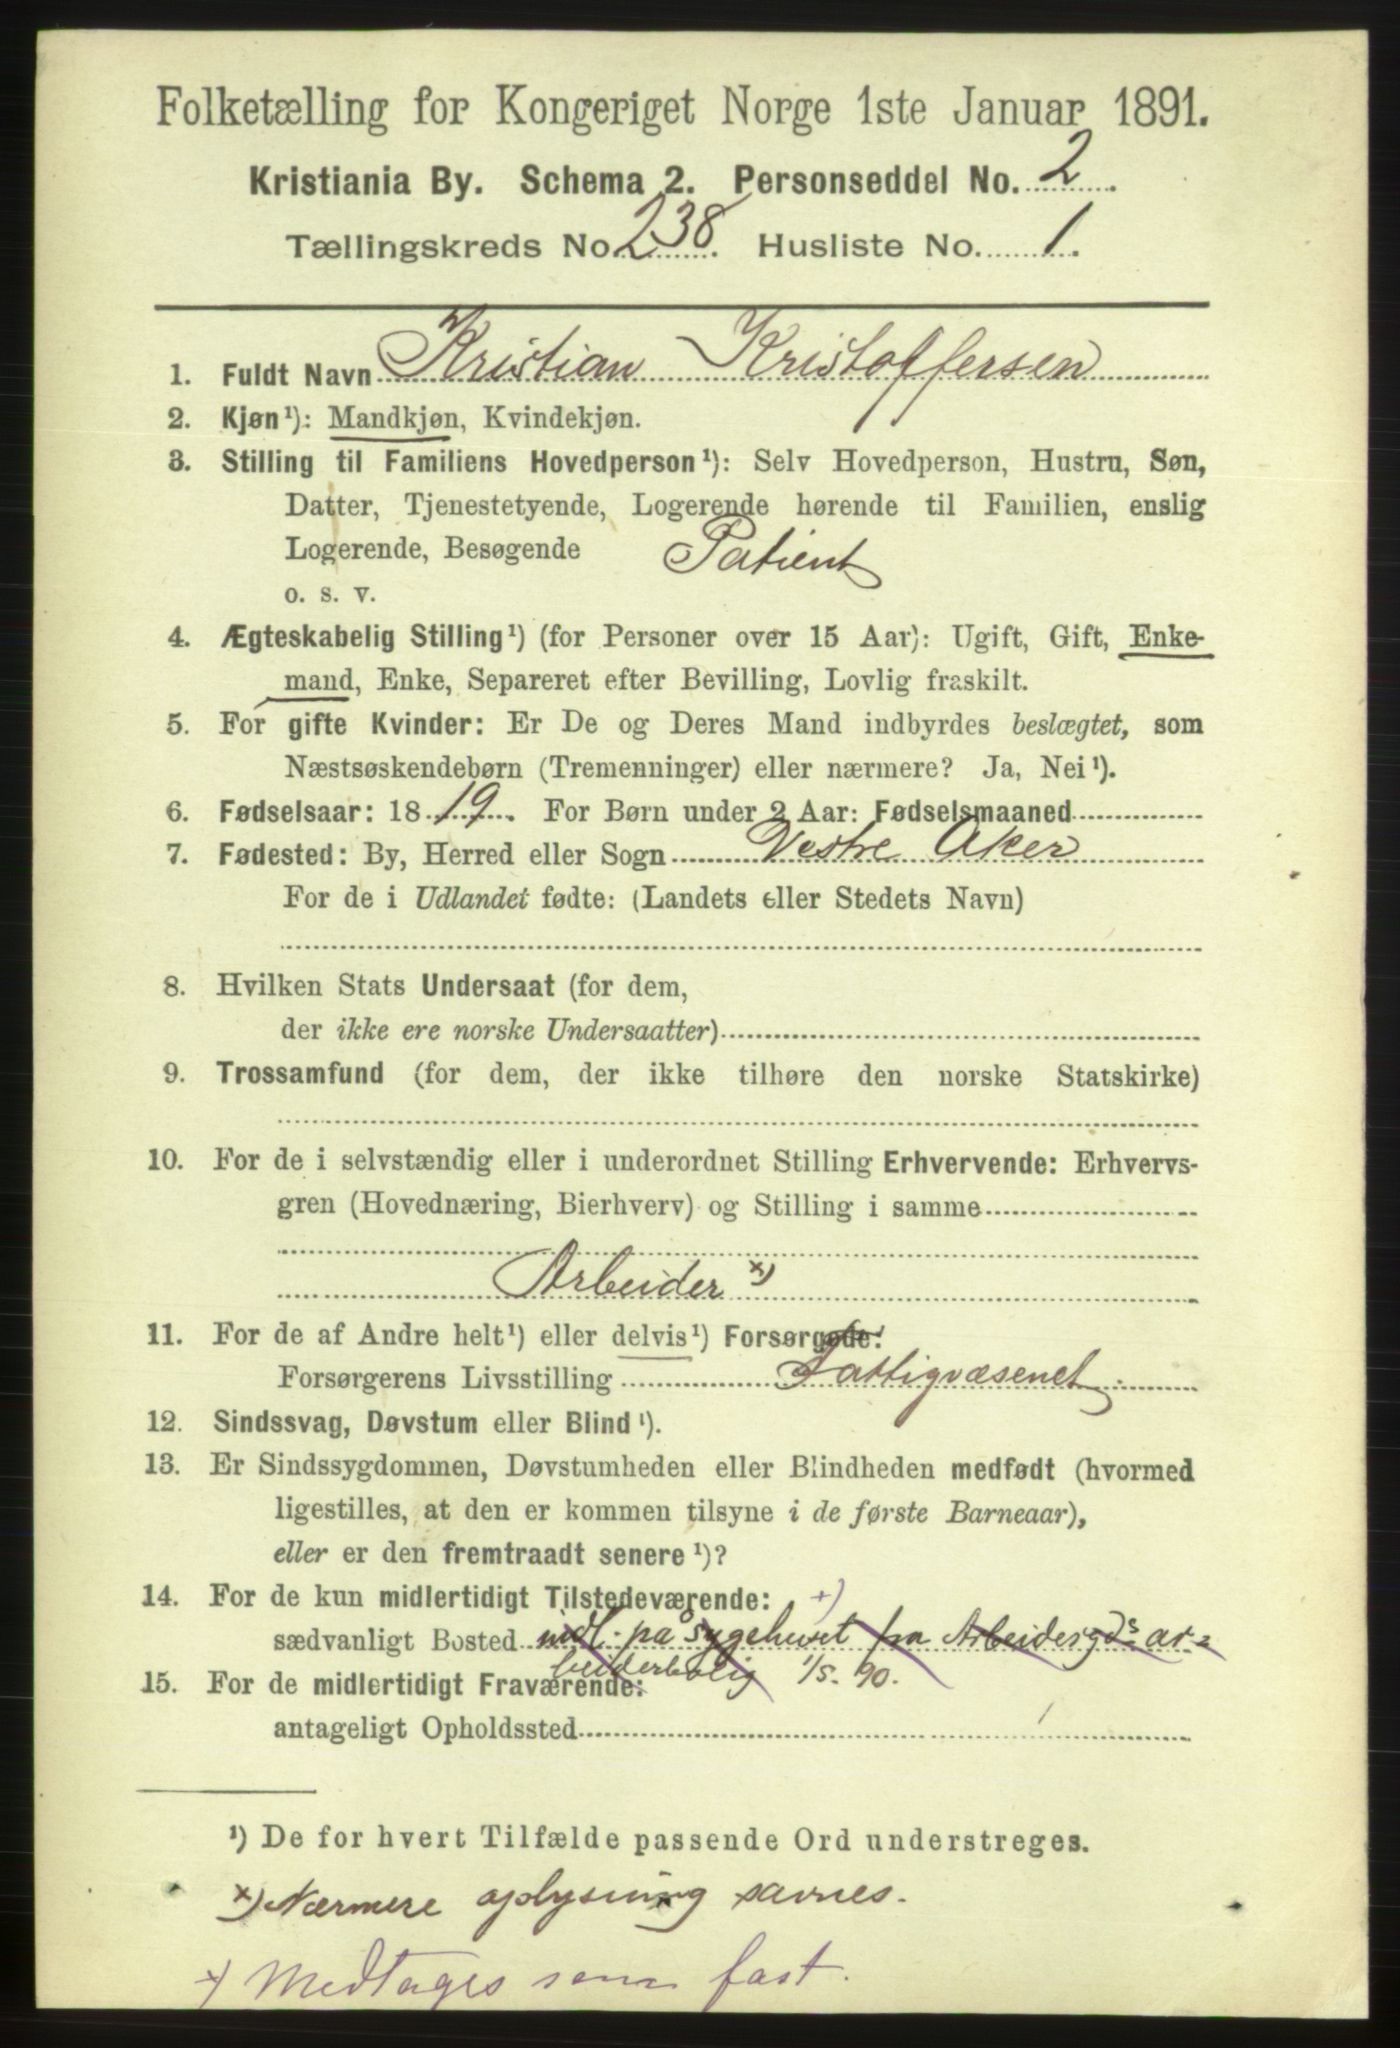 Folketælling for Kongeriget Norge 1ste Januar 1891.
Kristiania By. Schema 2. Personseddel No. 2.
Tællingskreds No. 238. Husliste No. 1.
1. Fuldt Navn Kristian Kristoffersen
2. Kjøn¹): Mandkjøn, Kvindekjøn.
3. Stilling til Familiens Hovedperson¹): Selv Hovedperson, Hustru, Søn,
Datter, Tjenestetyende, Logerende hørende til Familien, enslig
Logerende, Besøgende Patient
o. s. v.
4. Ægteskabelig Stilling¹) (for Personer over 15 Aar): Ugift, Gift, Enke-
mand, Enke, Separeret efter Bevilling, Lovlig fraskilt.
5. For gifte Kvinder: Er De og Deres Mand indbyrdes beslægtet, som
Næstsøskendebørn (Tremenninger) eller nærmere? Ja, Nei¹).
6. Fødselsaar: 1819. For Børn under 2 Aar: Fødselsmaaned
7. Fødested: By, Herred eller Sogn Vestre Aker
For de i Udlandet fødte: (Landets eller Stedets Navn)
8. Hvilken Stats Undersaat (for dem,
der ikke ere norske Undersaatter)
9. Trossamfund (for dem, der ikke tilhøre den norske Statskirke)
10. For de i selvstændig eller i underordnet Stilling Erhvervende: Erhvervs-
gren (Hovednæring, Bierhverv) og Stilling i samme
Arbeider x)
11. For de af Andre helt¹) eller delvis¹) Forsørgede:
Forsørgerens Livsstilling Fattigvæsenet
12. Sindssvag, Døvstum eller Blind¹).
13. Er Sindssygdommen, Døvstumheden eller Blindheden medfødt (hvormed
ligestilles, at den er kommen tilsyne i de første Barneaar),
eller er den fremtraadt senere¹)?
14. For de kun midlertidigt Tilstedeværende: +)
sædvanligt Bosted midl. på sygehuset fra Arbeidersgds ar=
beiderbolig 1/5. 90.
15. For de midlertidigt Fraværende:
antageligt Opholdssted
¹) De for hvert Tilfælde passende Ord understreges.
x) Nærmere oplysning savnes.
+) Medtages som fast.